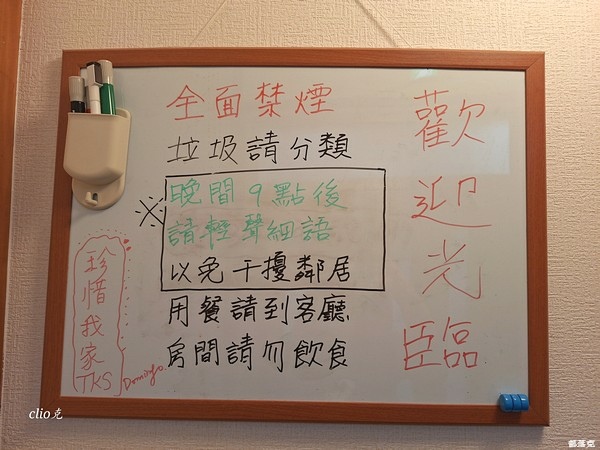 全面禁煙
垃圾請分類
※
晚間9點後
請輕聲細語
以免干擾鄰居
用餐請到客廳
房間請勿飲食
歡迎光臨
珍惜我家
TKS
Domingo
clio克
部落克